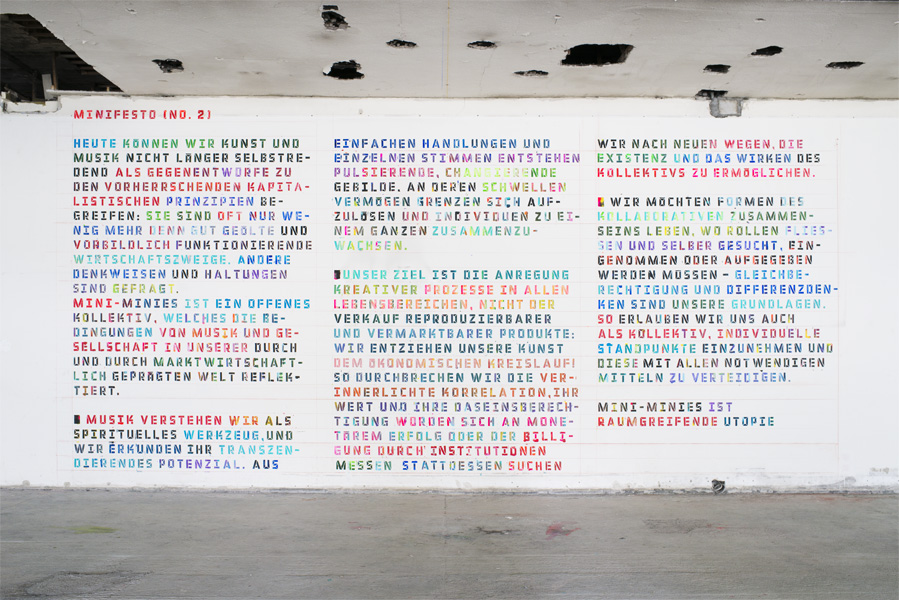 MINIFESTO (NO. 2)
HEUTE KÖNNEN WIR KUNST UND
MUSIK NICHT LÄNGER SELBSTRE-
DEND ALS GEGENENTWÖRFE ZU
DEN VORHERRSCHENDEN KAPITA-
LISTISCHEN PRINZIPIEN BE-
GREIFEN: SIE SIND OFT NUR WE-
NIG MEHR DENN GUT GEÖLTE UND
VORBILDLICH FUNKTIONIERENDE
WIRTSCHAFTSZWEIGE. ANDERE
DENKWEISEN UND HALTUNGEN
SIND GEFRAGT.
MINI-MINIES IST EIN OFFENES
KOLLEKTIV, WELCHES DIE BE-
DINGUNGEN VON MUSIK UND GE-
SELLSCHAFT IN UNSERER DURCH
UND DURCH MARKTWIRTSCHAFT-
LICH GEPRÄGTEN WELT REFLEK-
TIERT.
MUSIK VERSTEHEN WIR ALS
SPIRITUELLES WERKZEUG, UND
WIR ERKUNDEN IHR TRANSZEN-
DIERENDES POTENZIAL. AUS
EINFACHEN HANDLUNGEN UND
EINZELNEN STIMMEN ENTSTEHEN
PULSIERENDE, CHANGIERENDE
GEBILDE, AN DEREN SCHWELLEN
VERMÖGEN GRENZEN SICH AUF-
ZULÖSEN UND INDIVIDUEN ZU EI-
NEM GANZEN ZUSAMMENZU-
WACHSEN.
UNSER ZIEL IST DIE ANREGUNG
KREATIVER PROZESSE IN ALLEN
LEBENSBEREICHEN, NICHT DER
VERKAUF REPRODUZIERBARER
UND VERMARKTBARER PRODUKTE:
WIR ENTZIEHEN UNSERE KUNST
DEM ÖKONOMISCHEN KREISLAUF!
SO DURCHBRECHEN WIR DIE VER-
INNERLICHTE KORRELATION, IHR
WERT UND IHRE DASEINSBERECH-
TIGUNG WÜRDEN SICH AN MONE-
TÄREM ERFOLG ODER DER BILLI-
GUNG DURCH INSTITUTIONEN
MESSEN STATTDESSEN SUCHEN
WIR NACH NEUEN WEGEN, DIE
EXISTENZ UND DAS WIRKEN DES
KOLLEKTIVS ZU ERMÖGLICHEN.
WIR MÖCHTEN FORMEN DES
KOLLABORATIVEN ZUSAMMEN-
SEINS LEBEN, WO ROLLEN FLIES-
SEN UND SELBER GESUCHT, EIN-
GENOMMEN ODER AUFGEGEBEN
WERDEN MÜSSEN - GLEICHBE-
RECHTIGUNG UND DIFFERENZDEN-
KEN SIND UNSERE GRUNDLAGEN.
SO ERLAUBEN WIR UNS AUCH
ALS KOLLEKTIV, INDIVIDUELLE
STANDPUNKTE EINZUNEHMEN UND
DIESE MIT ALLEN NOTWENDIGEN
MITTELN ZU VERTEIDIGEN.
MINI-MINIES IST
RAUMGREIFENDE UTOPIE